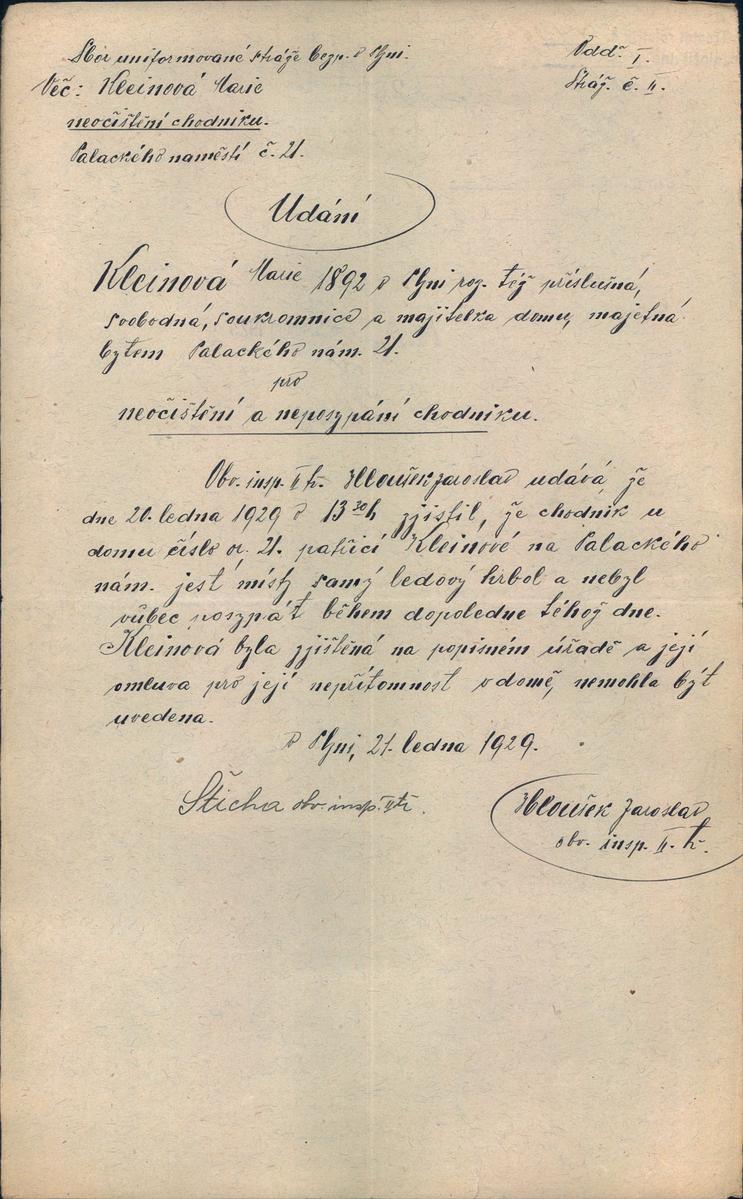 Sbor uniformované stráže bezp. v Plzni.
Odděl. I.
Věc: Kleinová Marie
Stráž. č. II.
neočištění chodniku.
Palackého naměstí č. 21.
Udání
Kleinová Marie 1892 v Plzni roz. též příslušná,
svobodná, soukromnice a majitelka domu, majetná
bytem Palackého nám. 21.
pro
neočištění a neposypání chodniku.
Obv. insp. II tř. Hloušek Jaroslav udává, že
dne 20. ledna 1929 v 13 30 h zjistil, že chodnik u
domu číslo or. 21. patřicí Kleinové na Palackého
nám. jest místy samý ledový hrbol a nebyl
vůbec posypát během dopoledne téhož dne.
Kleinová byla zjištěná na popisném úřadě a její
omluva pro její nepřítomnost v domě, nemohla být
uvedena.
V Plzni, 21. ledna 1929.
Šticha obv. insp. II tř.
Hloušek Jaroslav
obv. insp. II. tř.